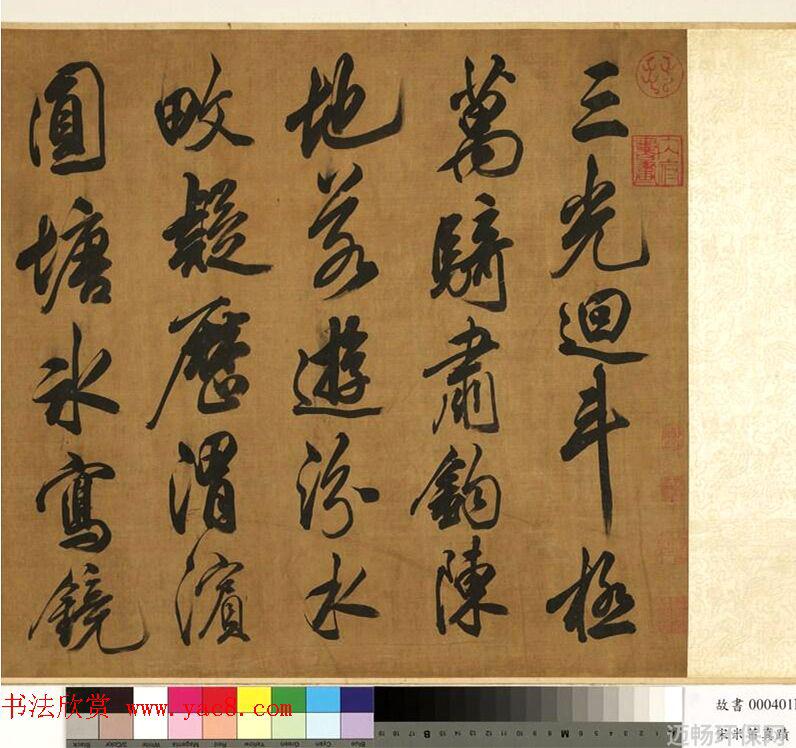 三光迴斗極
萬騎肅鉤陳
地若遊汾水
畋疑歷渭濱
圓塘冰寫鏡
書法欣赏 www.yac8.com
故書 000401
宋米芾真蹟
迈畅环保网
Black
3/Color
White
Magenta
Red
Yellow
Green
Cyan
Blue
B
M